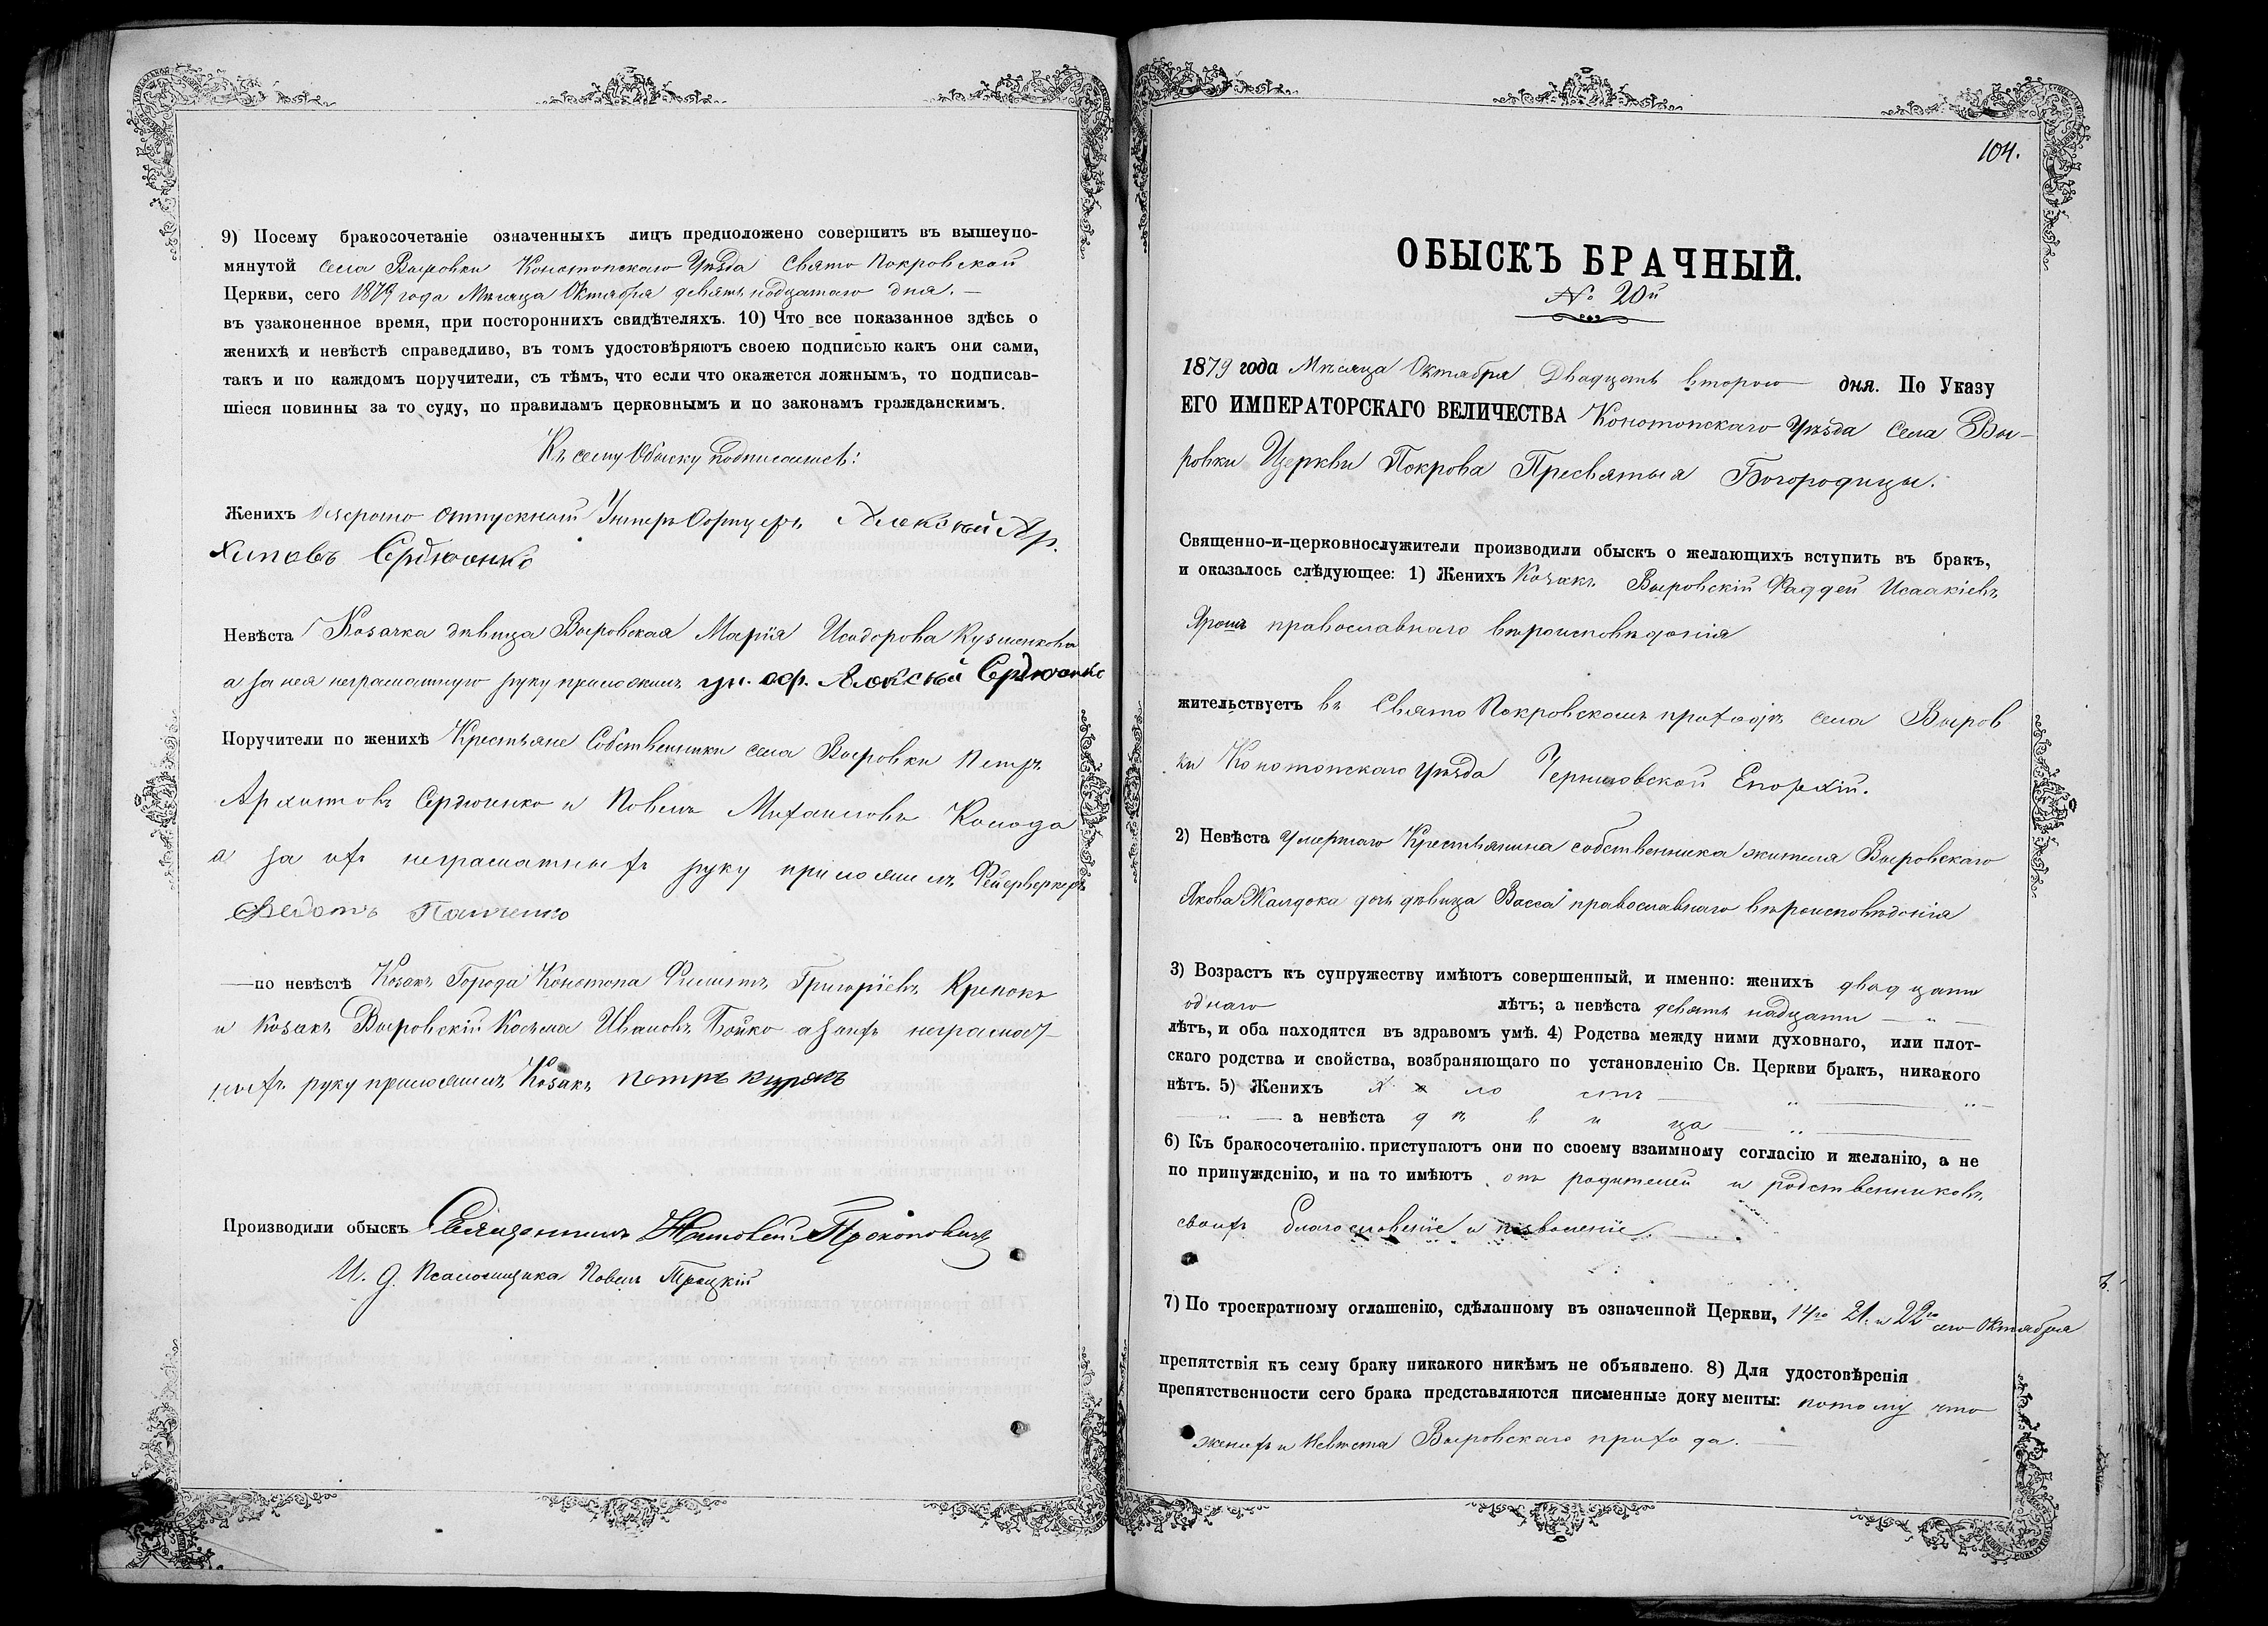 9) Посему бракосочетаніе означенныхъ лицъ предположено совершить въ вышеупо-
мянутой села Выровки Конотопскаго Уѣзда Свято Покровской
Церкви, сего 1879 года Мѣсяца Октября девятнадцатаго дня. —
въ узаконенное время, при постороннихъ свидѣтеляхъ. 10) Что все показанное здѣсь о
женихѣ и невѣстѣ справедливо, въ томъ удостовѣряютъ своею подписью какъ они сами,
такъ и по каждомъ поручители, съ тѣмъ, что если что окажется ложнымъ, то подписав-
шіеся повинны за то суду, по правиламъ церковнымъ и по законамъ гражданскимъ.
Къ сему Обыску подписались:
Женихъ отпускной Унтеръ Офицеръ Алексѣй Ар.
хиповъ Сердюенко
Невѣста Козачка дѣвица Выровская Марія Исидорова Кузменкова
а за нея неграматную руку приложилъ ун. оф. Алексѣй Сердюенко
Поручители по женихѣ Крестьяне Собственники села Выровки Петръ
Архиповъ Сердюенко и Павелъ Михаиловъ Колода
а за ихъ неграматныхъ руку приложилъ Фейерверкеръ
Федотъ Панченко
—по невѣстѣ Козакъ Города Конотопа Филиппъ Григоріевъ Крепокъ
и Козакъ Выровскій Косьма Ивановъ Бойко а за ихъ неграмат-
ныхъ руку приложилъ Козакъ Петръ Курякъ
Производили обыскъ Священникъ Прокоповичъ
И. д. Псаломщика Павелъ Троцкій
104.
ОБЫСКЪ БРАЧНЫЙ.
№ 20й
1879 года Мѣсяца Октября Двадцать втораго дня. По Указу
ЕГО ИМПЕРАТОРСКАГО ВЕЛИЧЕСТВА Конотопскаго Уѣзда Села Вы-
ровки Церкви Покрова Пресвятыя Богородицы.
Священно-и-церковнослужители производили обыскъ о желающихъ вступить въ бракъ,
и оказалось слѣдующее: 1) Женихъ Козакъ Выровскій Фаддей Исаакіевъ
Ярошъ православнаго вѣроисповѣданія
жительствуетъ въ Свято Покровскомъ приходѣ села Выров
ки Конотопскаго Уѣзда Черниговской Епархіи.
2) Невѣста умершаго Крестьянина собственника жителя Выровскаго
Якова Жалдока дочь дѣвица Васса православнаго вѣроисповѣданія
3) Возрастъ къ супружеству имѣютъ совершенный, и именно: женихъ двадцати
однаго лѣтъ; а невѣста девятнадцати — „ —
лѣтъ, и оба находятся въ здравомъ умѣ. 4) Родства между ними духовнаго, или плот-
скаго родства и свойства, возбраняющаго по установленію Св. Церкви бракъ, никакого
нѣтъ. 5) Женихъ холостъ — „ — „ —
— „ — а невѣста дѣвица — „ —
6) Къ бракосочетанію приступаютъ они по своему взаимному согласію и желанію, а не
по принужденію, и на то имѣютъ отъ родителей и родственниковъ
своихъ благословеніе и позволеніе. —
7) По троекратному оглашенію, сдѣланному въ означенной Церкви, 14го 21. и 22го сего Октября
препятствія къ сему браку никакого никѣмъ не объявлено. 8) Для удостовѣренія
препятственности сего брака представляются писменные документы: потому что
женихъ и невѣста Выровскаго прихода.